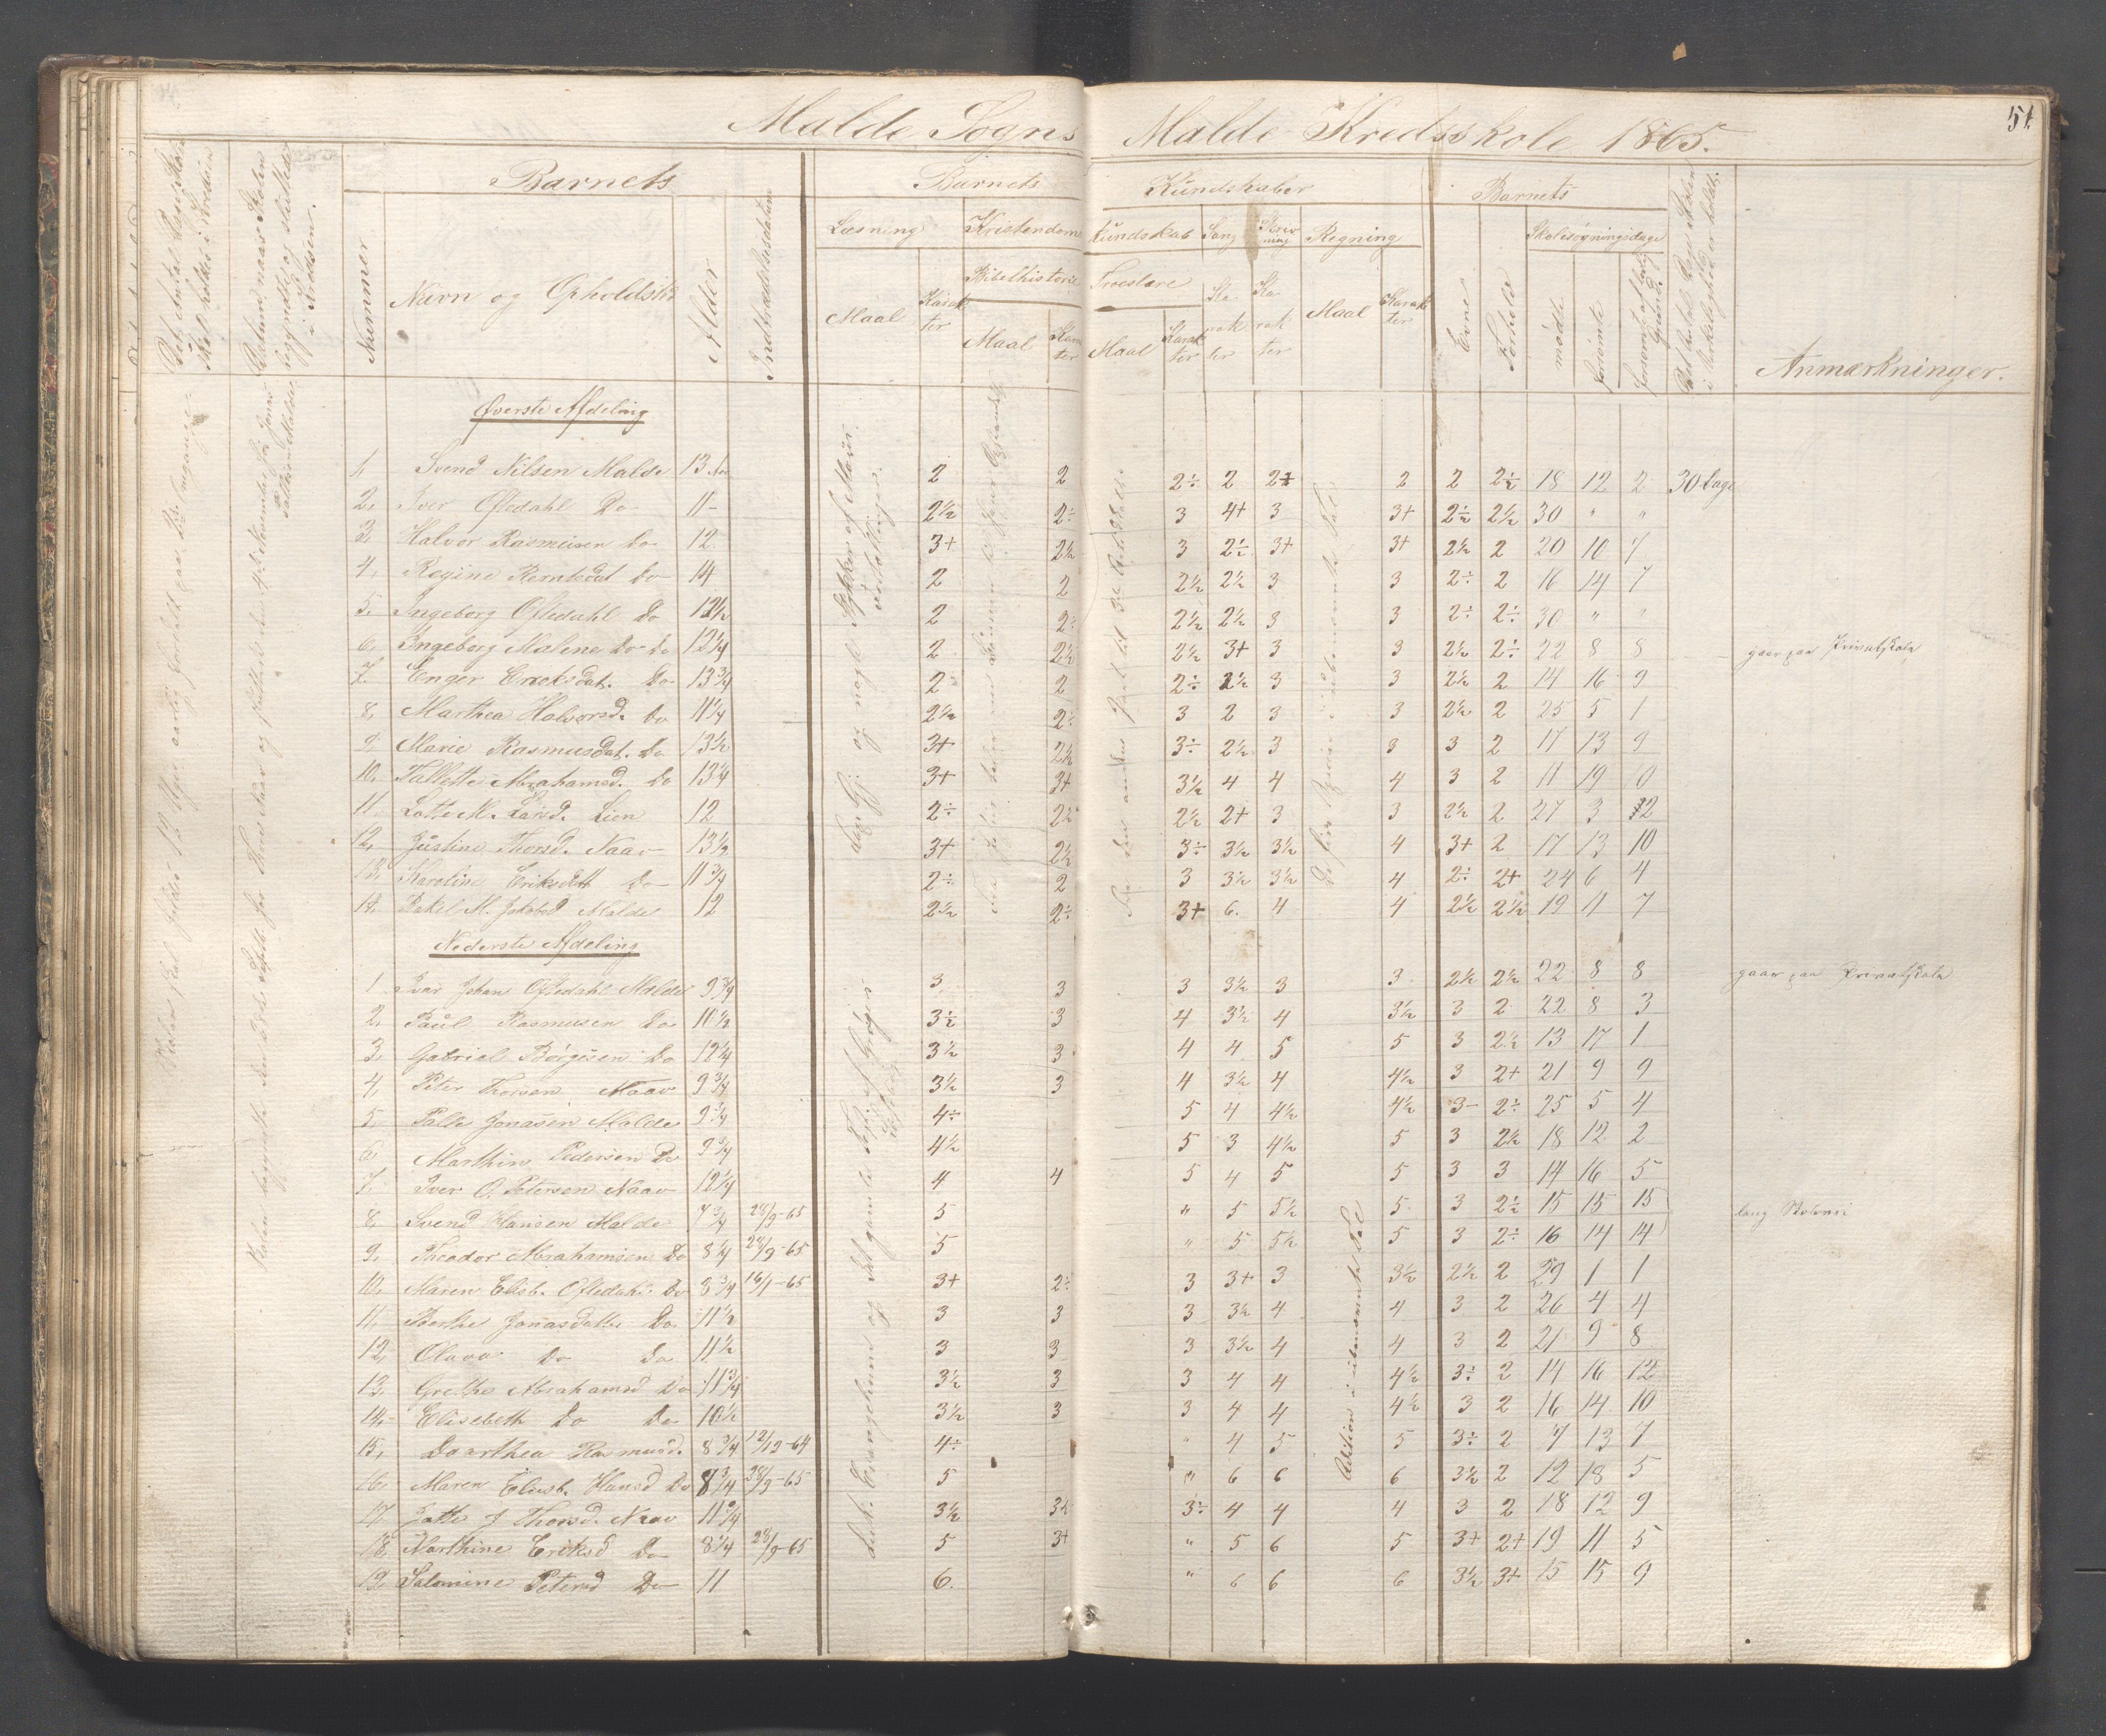 51.
Malde Sogns Malde Kredsskole 1865.
Barnets Barnets Kundskaber Barnets
Nummer Navn og Opholdsted Alder Indtrædelsesdatum
Læsning Kristendoms Kundskab Sang Skrivning Regning Skolesøgningsdage
Bibelhistorie Troeslære
Maal Karakter Maal Karakter Maal Karakter Karakter Karakter Maal Karakter Evne Forhold mødte forsømte Anmærkninger.
Øverste Afdeling
1, Svend Nilsen Malde 13 Aar 2 2 2÷ 2 2+ 2 2 2÷ 18 12 2 30 Dage
2, Iver Oftedahl Do 11 - 2½ 2÷ 3 4+ 3 3+ 2÷ 2½ 30 " "
3, Halvor Rasmusen Do 12 3+ 2½ 3 2÷ 3+ 3+ 2½ 2 20 10 7
4, Regine Berntsdat Do 14 2 2 2½ 2½ 3 3 2÷ 2 16 14 7
5, Ingeborg Oftedahl Do 12½ 2 2÷ 2½ 2½ 3 3 2÷ 2÷ 30 " "
6, Ingeborg Malene Do Do 12¼ 2 2½ 2½ 3+ 3 3 2½ 2÷ 22 8 8 gaar paa Privatskole
7, Enger Eriksdat. Do 13¾ 2 2 2÷ 2½ 3 3 2½ 2 14 16 9
8, Marthea Halvorsd. Do 11¼ 2½ 2÷ 3 2 3 3 2½ 2 25 5 1
9, Marie Rasmusdat. Do 13½ 3+ 2½ 3÷ 2½ 3 3 3 2 17 13 9
10, Tallette Abrahamsd. Do 13¼ 3+ 3+ 3½ 4 4 4 3 2 11 19 0
11, Lotte M. Larsd. Lien 12 2÷ 2½ 2½ 2+ 3 3 2½ 2 27 3 2
12, Justine Thorsd. Naav 13½ 3+ 2½ 3÷ 3½ 3½ 4 3+ 2 17 13 10
13, Karoline Eriksdtt Do 11¾ 2÷ 2 3 3½ 3½ 4 2÷ 2+ 24 6 4
14, Rakel M. Jakobsd Malde 12 2½ 2÷ 3+ 6. 4 4 2½ 2½ 19 11 7
Nederste Afdeling
1 Ivar Johan Oftedahl Malde 9¾ 3 3 3 3½ 3 3 2½ 2½ 22 8 8 gaar paa Privatskole
2, Paul Rasmusen Do 10½ 3½ 3 4 3½ 4 3½ 3 2 22 8 3
3, Gabriel Børgesen Do 12¼ 3½ 3 4 4 5 5 3 2½ 13 17 1
4, Peter Thorsen Naav 9¾ 3½ 3 4 3½ 4 4½ 3 2+ 21 9 9
5, Palle Jonasen Malde 9¼ 4÷ 5 4 4½ 4½ 3- 2÷ 25 5 4
6, Marthin Pedersen Do 9¾ 4½ 5 3 4½ 5 3 2½ 18 12 2
7, Iver O. Petersen Naav 12¼ 4 4 5 4 5 5 3 3 14 16 5
8, Svend Hansen Malde 7¾ 28/9-65 5 " 5 5½ 5 3 2÷ 15 15 15
9, Theodor Abrahamsen Do 8¼ 28/9-65 5 " 5 5½ 5 3 2÷ 16 14 14
10, Maren Elisb. Oftedahl Do 8¾ 16/1-65 3+ 2÷ 3 3+ 3 3½ 2½ 2 29 1 1
11, Berthe Jonasdatter Do 11½ 3 3 3 3½ 4 4 3 2 26 4 4
12, Olava Do Do 11½ 3 3 3 3½ 4 4 3 2 21 9 8
13, Grethe Abrahamsd Do 11¾ 3½ 3 3 4 4 4½ 3÷ 2 14 16 12
14, Elisebeth Do Do 10½ 3½ 3 3 4 4 4½ 3 2 16 14 10
15, Doorthea Rasmusd. 8¾ 12/12-64 4÷ " 4 5 5 3÷ 2 7 13 7
16, Maren Elisb. Hansd Do 8¾ 28/9-65 5 " 6 6 6 3½ 2 12 18 5
17, Jatte J Thorsd. Naav 11¾ 3½ 3½ 3÷ 4 4 4 3 2 18 12 9
18, Marthine Eriksd Do 8¼ 28/9-65 5 3+ " 5 6 5 3+ 2+ 19 11 5
19, Salomine Petersd Do 11 6. " 6 6 6 3½ 3+ 15 15 9